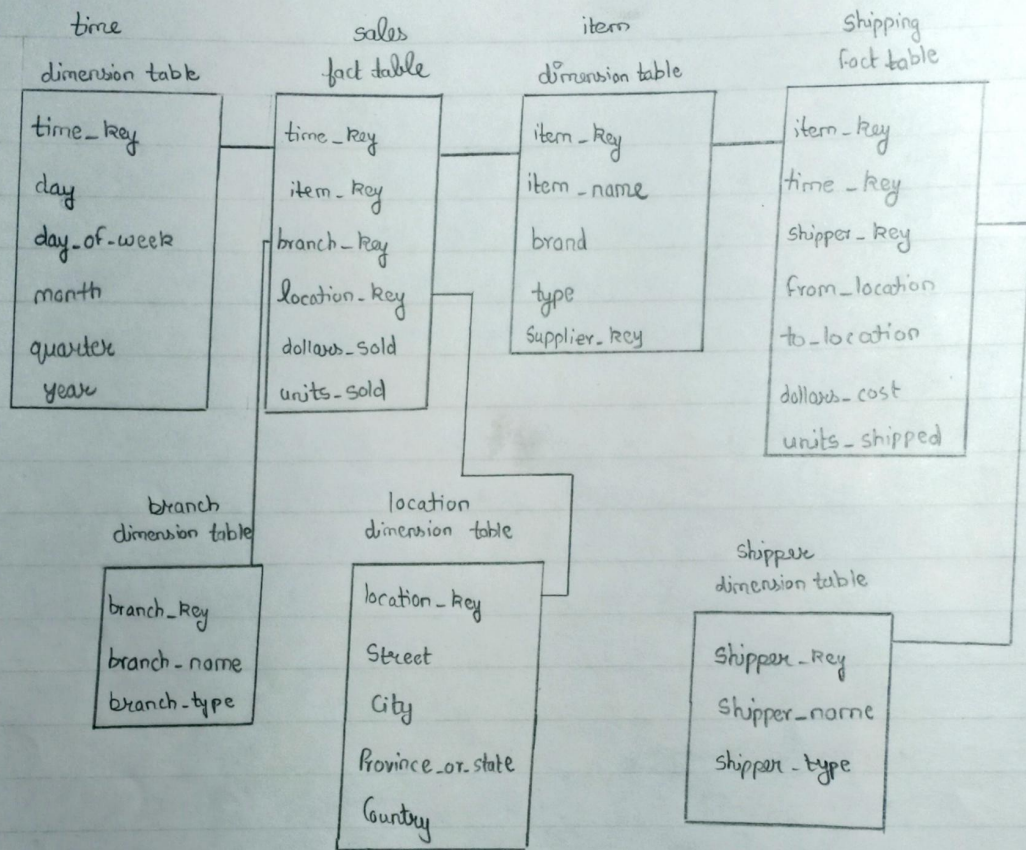 time
dimension table
time_key
day
day_of_week
month
quarter
year
sales
fact table
time_key
item_key
branch_key
location_key
dollars_sold
units_sold
item
dimension table
item_key
item_name
brand
type
supplier_key
Shipping
fact table
item_key
time_key
shipper_key
from_location
to_location
dollars_cost
units_shipped
branch
dimension table
branch_key
branch_name
branch_type
location
dimension table
location_key
Street
City
Province_or_state
Country
Shipper
dimension table
Shipper_key
Shipper_name
Shipper_type